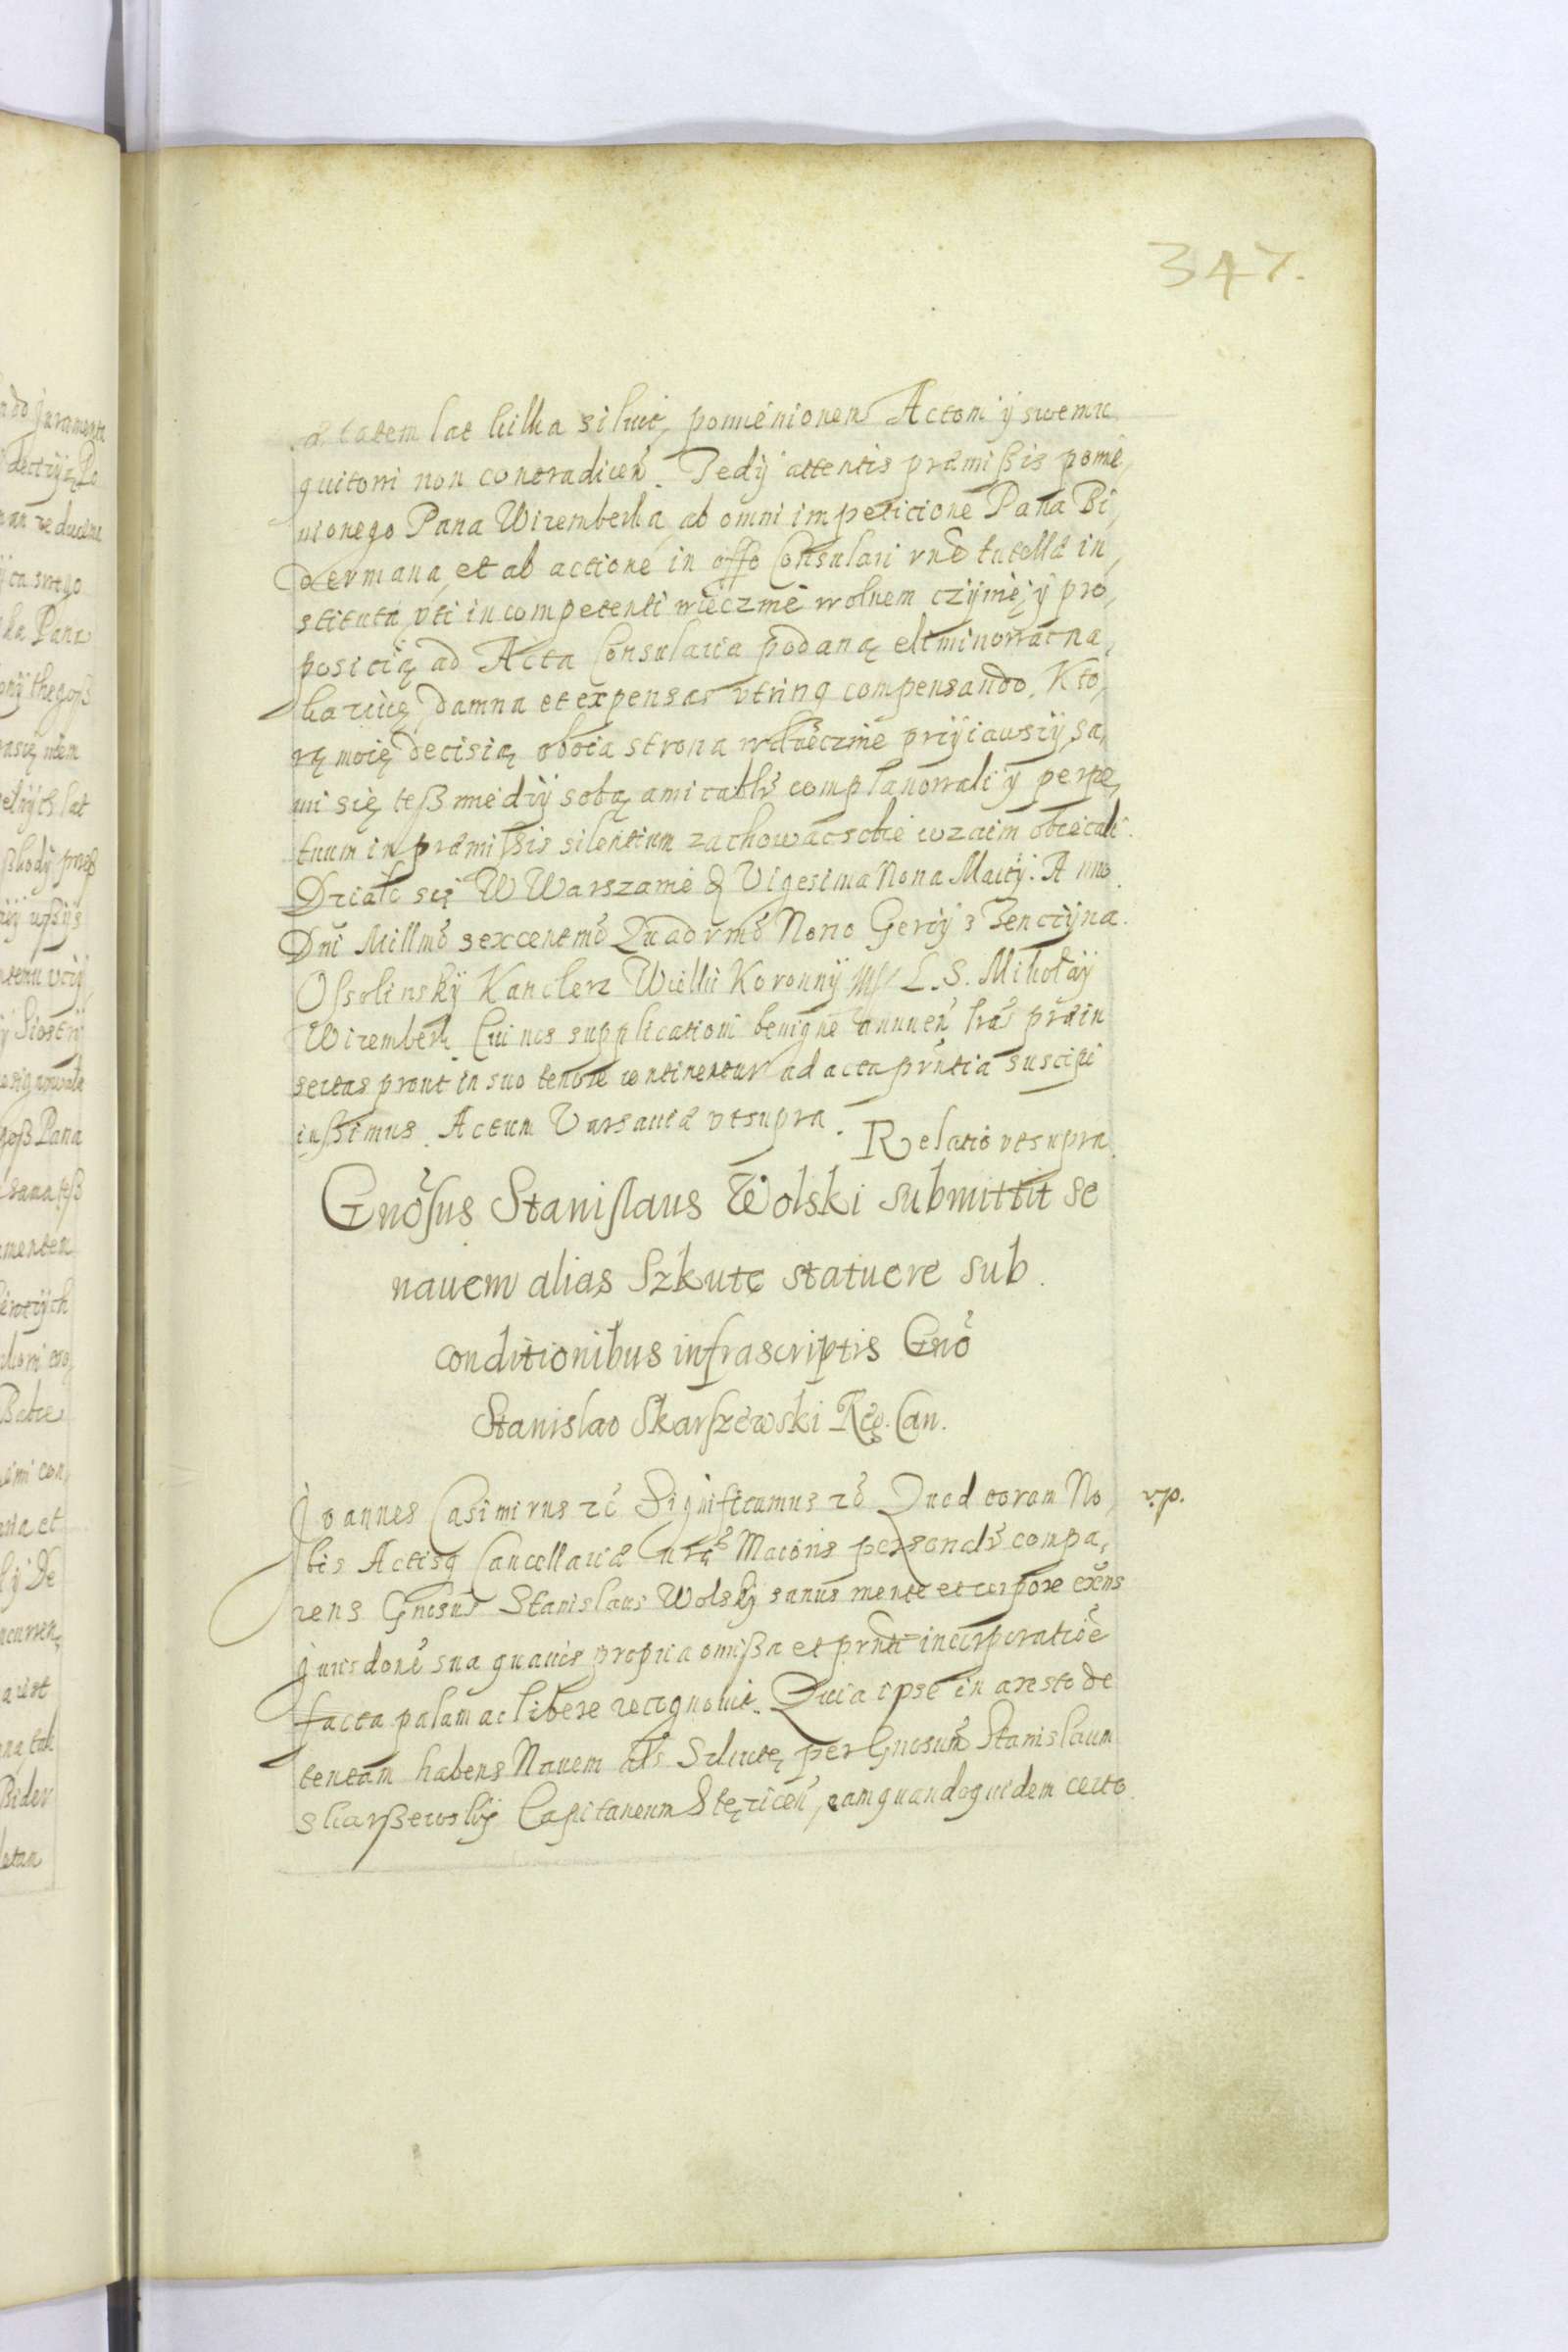 347.
ætatem lat kilka siluit, pomienionem Actorij swemu
quitorri non contradicen̄. Tedÿ attentis præmißis pomie,
nionego Pana Wirembeka, ab omni impeticione Pana Bi,
dermana, et ab actione in offo Consulari rnõe tutellæ in,
stituta, vti incompetenti wiecznie wolnem czynię, ÿ pro,
posicią ad Acta Consularia podaną eliminowac na,
kazuię, damna et expensas vtrinq compensando. Kto,
rą moię decisią oboia strona wdzięcznie przyiąwszÿ, sa,
mi się teß miedzÿ sobą amicablr complanowali ÿ perpe,
tuum in præmißis silentium zachowac sobie wzaim obiecali.
Działo się W Warszawie d Vigesima Nona Maiiÿ. Anno
Dni Millmo sexcentmo Quadrmo Nono Gerzÿ z Tenczÿna
Ossolinskÿ Kanclerz Wielki Koronnÿ mp L. S. Mikołaÿ
Wirembek. Cui nos supplicationi benigne annuen̄ lrãs præin
sertas prout in suo tenore continentur ad acta prntia suscipi
iußimus. Actum Varsaviæ vt supra.
Relatio vt supra.
Gnosus Stanislaus Wolski submittit se
nauem alias Szkutę statuere sub
conditionibus infrascriptis Gno
Stanislao Skarszewski Reg. Can.
Joannes Casimirus rc Significamus rc Quod coram No, rp.
bis Actisq Cancellariæ nræ Maioris personalr compa,
rens Gnosus Stanislaus Wolskÿ sanus mente et corpore exns
iurisdone sua quauis propria omißa et prnti incorporatione
facta palam ac libere recognouit. Quia ipse in aresto de
tentam habens Nauem als Szkutę per Gnosum Stanislaum
Skarßewskÿ Capitaneum Stęzicen̄, eam quandoquidem certo